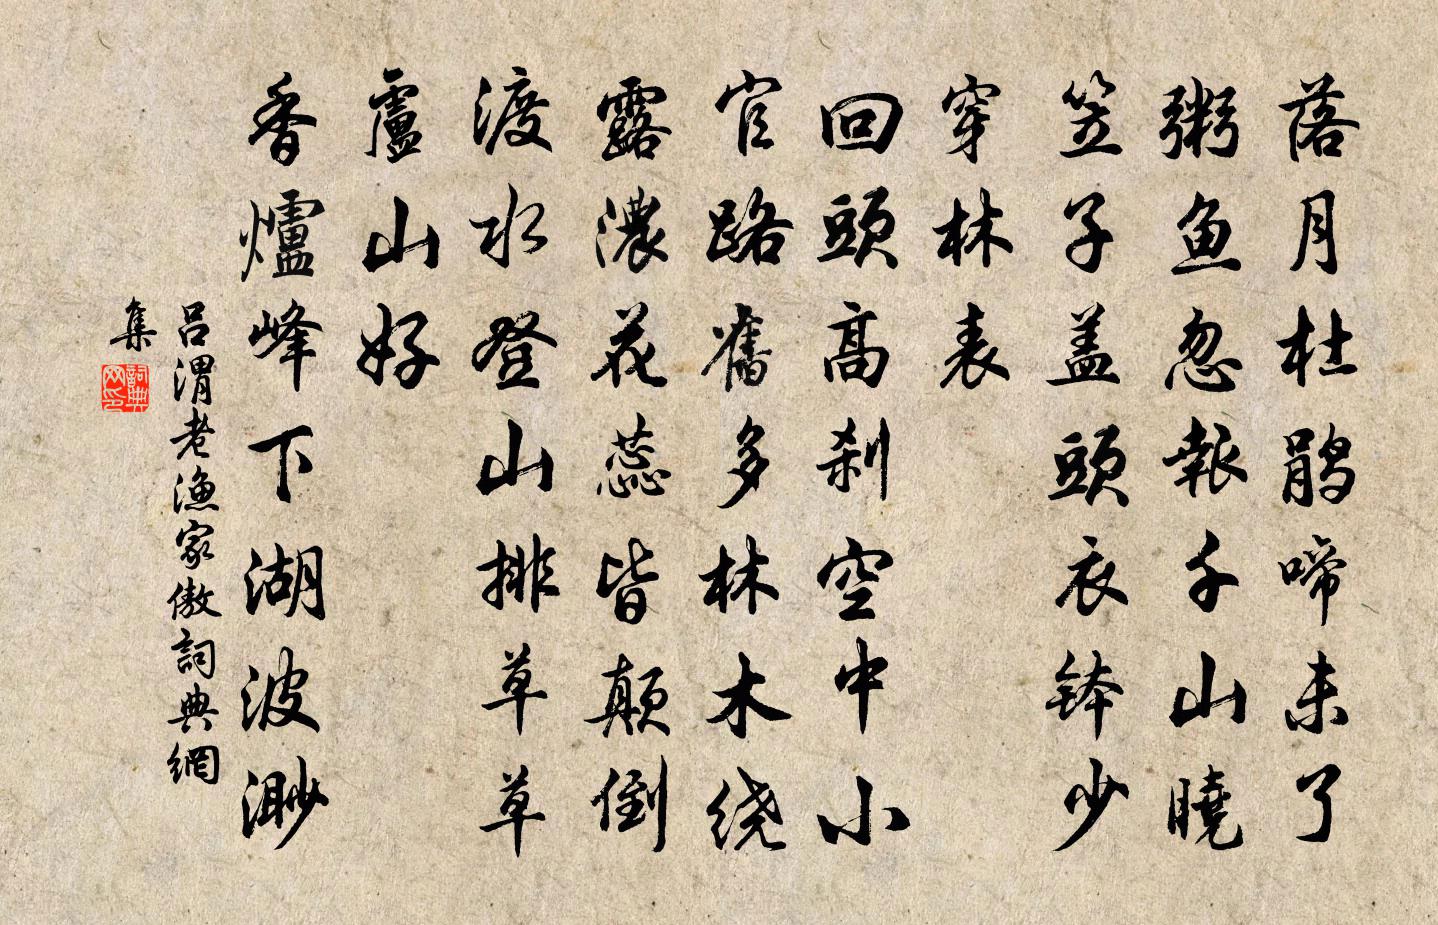 落月杜鹃啼未了
粥鱼忽報千山曉
笠子盖頭衣钵少
穿林表
回頭高刹空中小
官路舊多林木绕
露濃花蕊皆颠倒
渡水登山排草草
廬山好
香爐峰下湖波渺
吕渭老漁家傲詞典網
集
詞典
网印